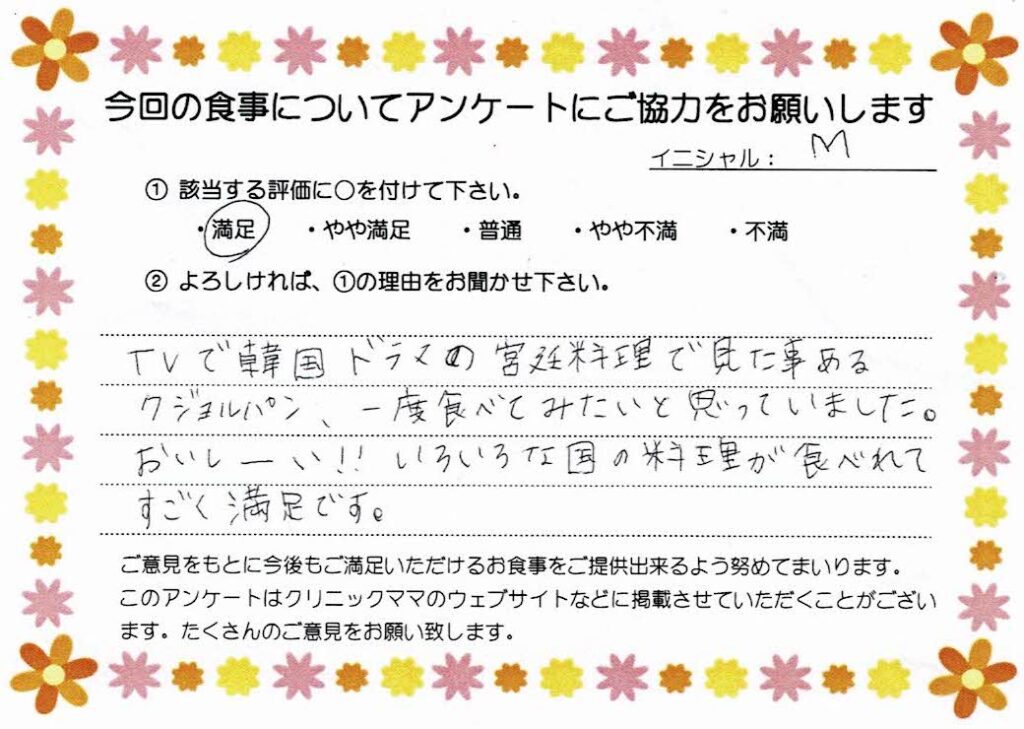 今回の食事についてアンケートにご協力をお願いします
イニシャル： M
① 該当する評価に○を付けて下さい。
・満足 ・やや満足 ・普通 ・やや不満 ・不満
② よろしければ、①の理由をお聞かせ下さい。
TVで韓国ドラマの宮廷料理で見た事ある
クジョルパン、一度食べてみたいと思っていました。
おいしーい!! いろいろな国の料理が食べれて
すごく満足です。
ご意見をもとに今後もご満足いただけるお食事をご提供出来るよう努めてまいります。
このアンケートはクリニックママのウェブサイトなどに掲載させていただくことがござい
ます。たくさんのご意見をお願い致します。